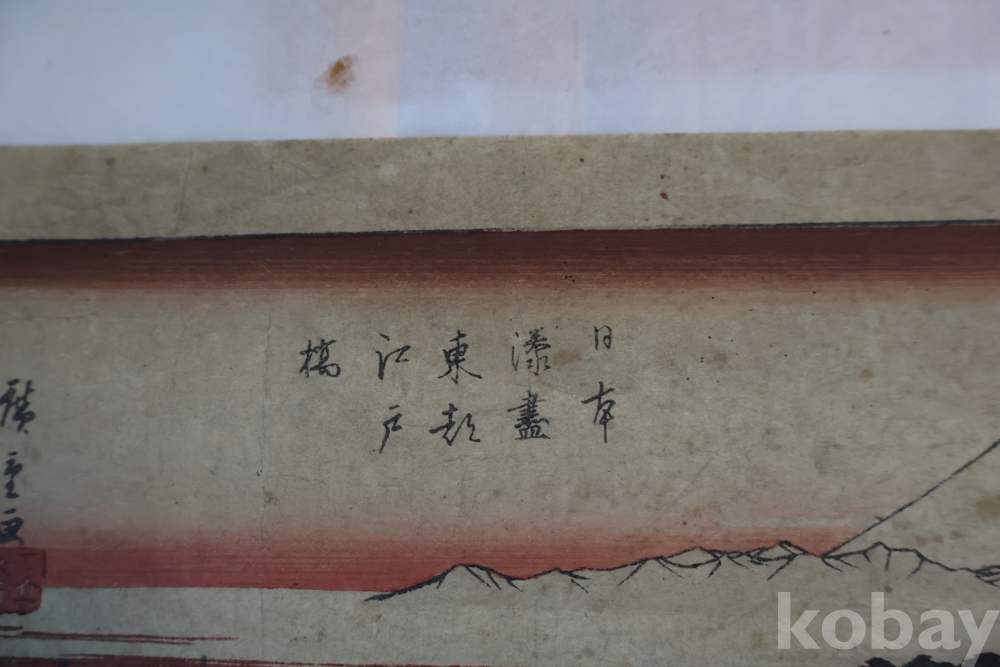 日本
東都
江戸
橋
廣重画
kobay